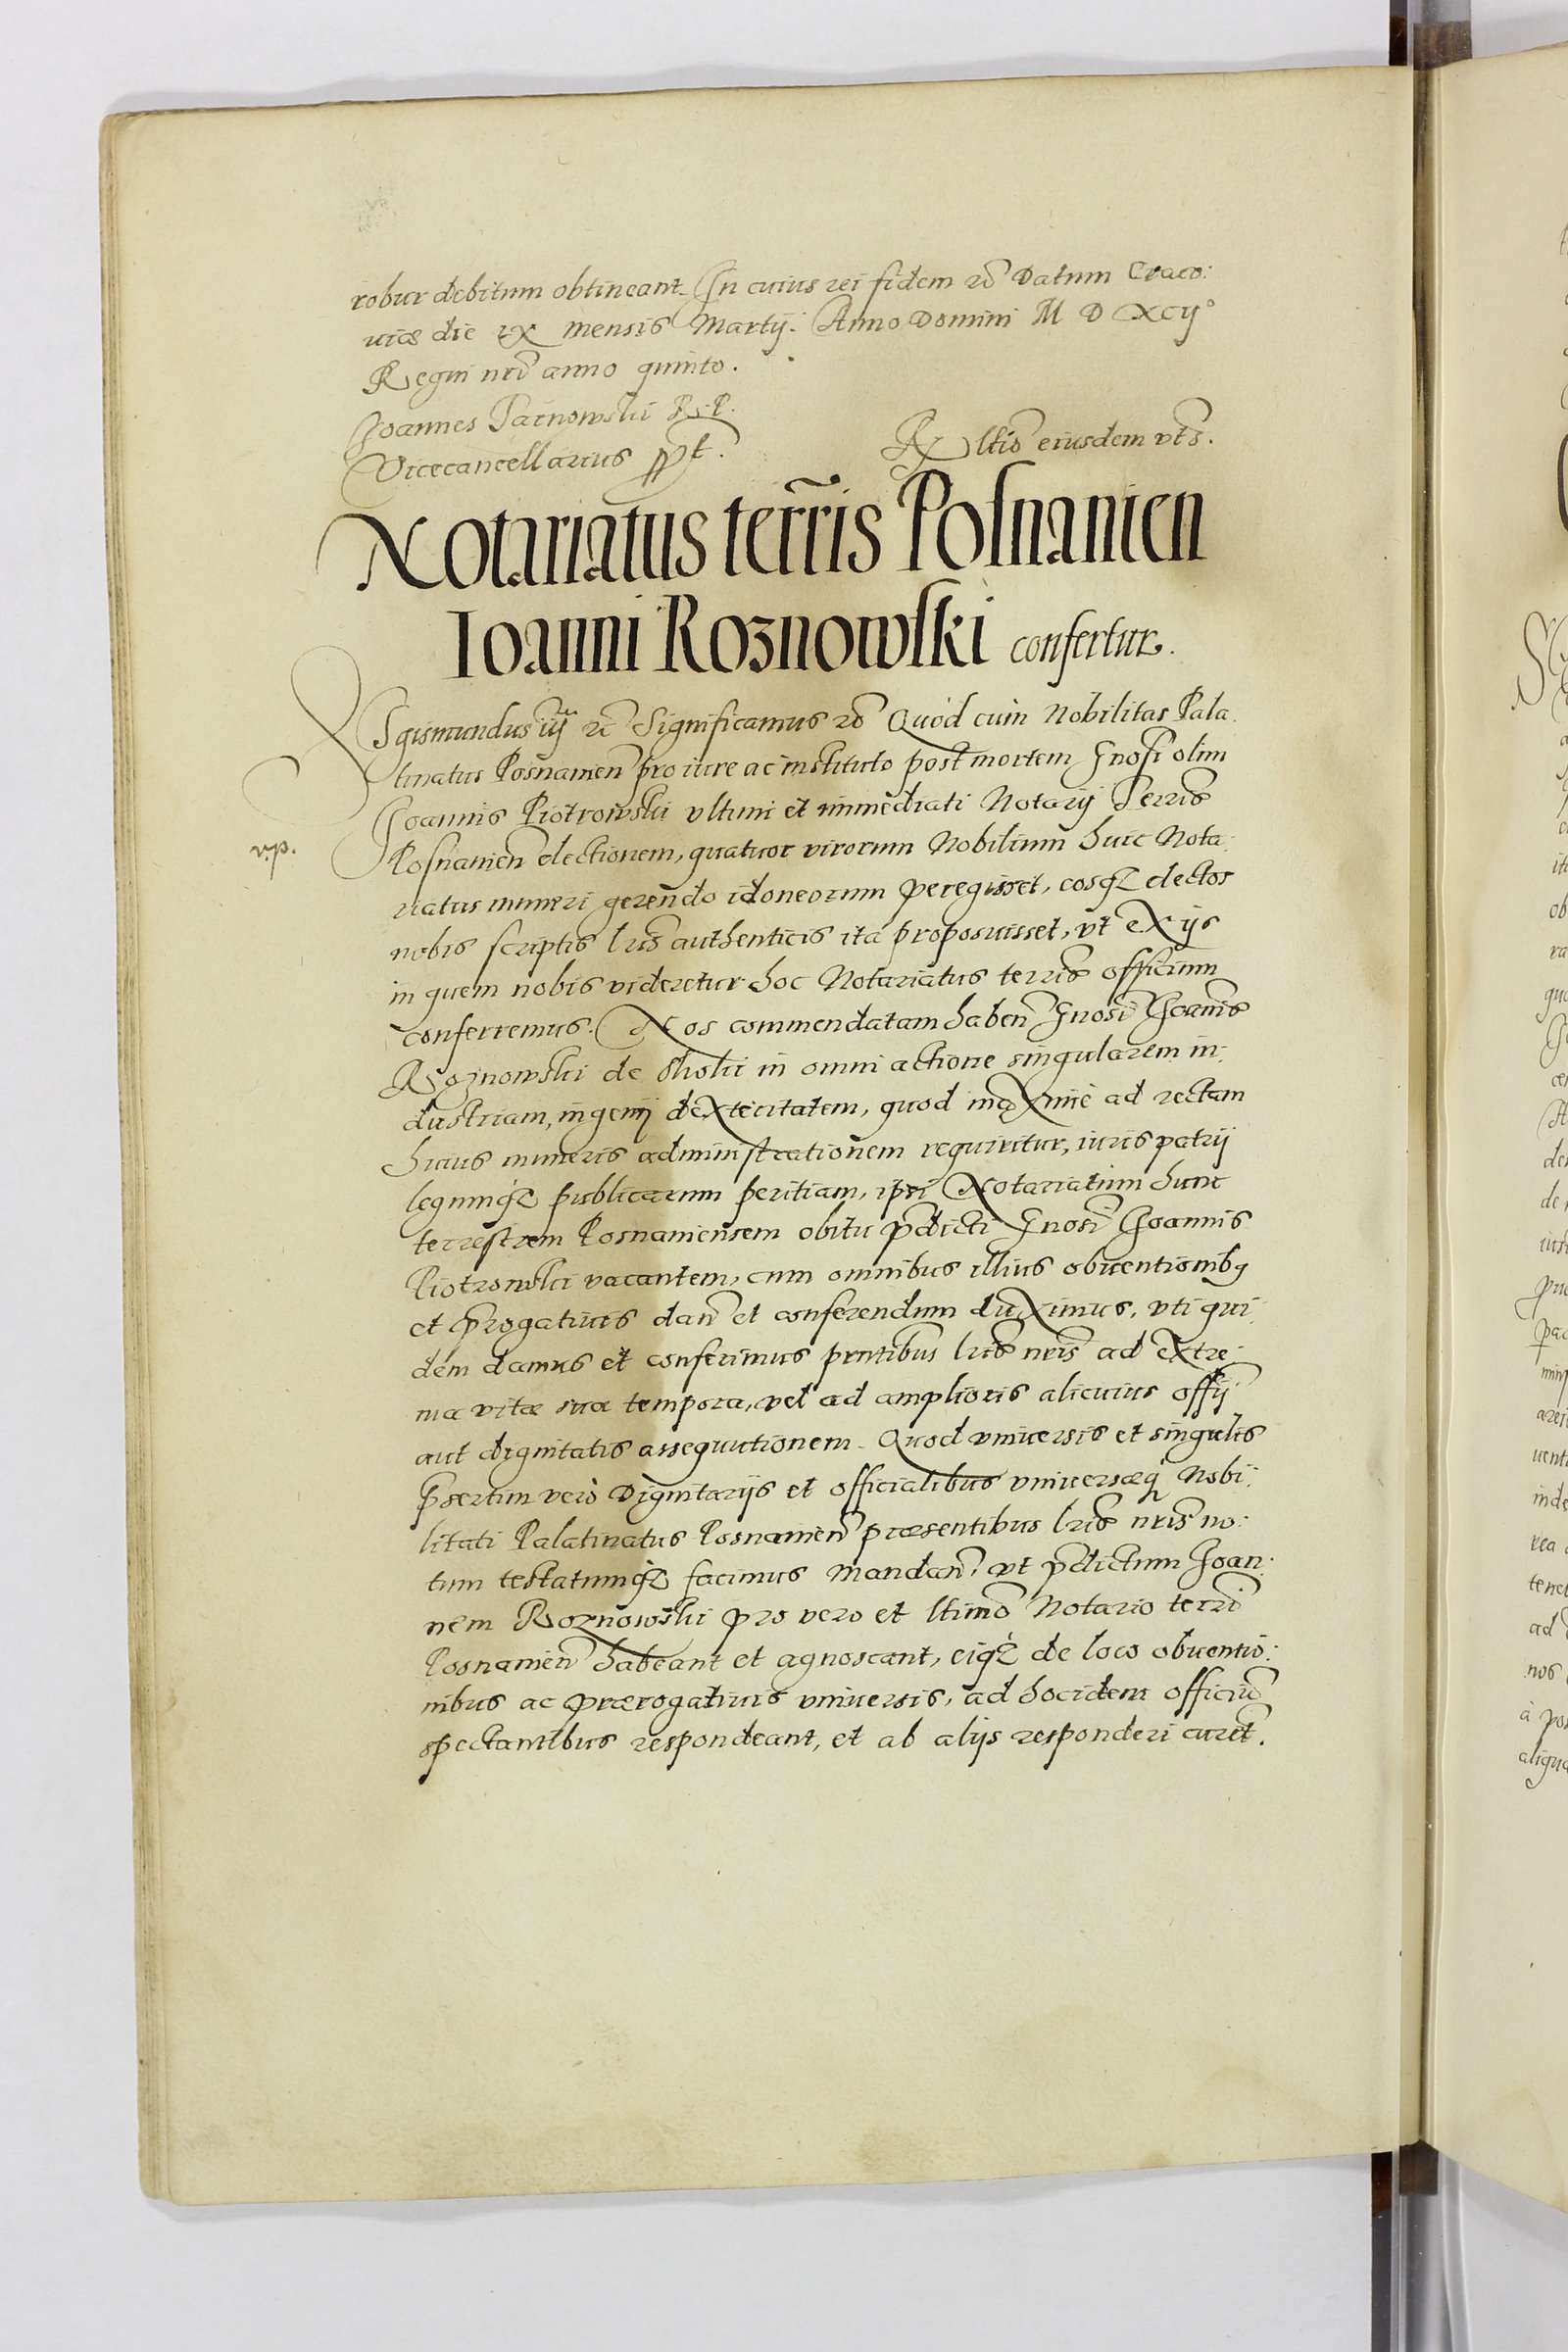 robur debitum obtineant. In cuius rei fidem &c Datum Craco:
uiæ die ix mensis Martij. Anno Domini M D XCij°
Regni nri anno quinto.
Joannes Tarnowski R. P.
Vicecancellarius
Rltio eiusdem vts.
Notariatus terris Posnanien
Ioanni Roznowski confertur.
Sgismundus iij &c Significamus &c Quod cum Nobilitas Pala
tinatus Posnanien pro iure ac instituto post mortem Gnosi olim
Joannis Piotrowski vltimi et immediati Notarij Terris
v.p.
Posnanien electionem, quatuor virorum Nobilium huic Nota:
riatus muneri gerendo idoneorum peregisset, eosqz electos
nobis scriptis lris authenticis ita proposuisset, vt ex ijs
in quem nobis videretur hoc Notariatus terris officium
conferremus. Nos commendatam haben Gnosi Joanis
Roznowski de in omni actione singularem in:
dustriam, ingenij dexteritatem, quod maxime ad rectam
huius muneris administrationem requiritur, iuris patrij
legumqz publicarum peritiam, ipsi Notariatum hunc
terrestrem Posnaniensem obitu pdicti Gnosi Joannis
Piotrowski vacantem, cum omnibus illius obuentionibq
et progatiuis dan et conferendum duximus, vti qui:
dem damus et conferimus pntibus lris nris ad extre:
ma vitæ suæ tempora, vel ad amplioris alicuius offij
aut dignitatis assequutionem. Quod vniuersis et singulis
psertim verò Dignitarijs et officialibus vniuersæq Nobi:
litati Palatinatus Posnanien præsentibus lris nris no:
tum testatumqz facimus Mandan, vt pdictum Joan:
nem Roznowski pro vero et ltimo Notario terris
Posnanien habeant et agnoscant, eiqz de loco obuentio:
nibus ac prærogatiuis vniuersis, ad hocidem officiu
spectantibus respondeant, et ab alijs responderi curet.